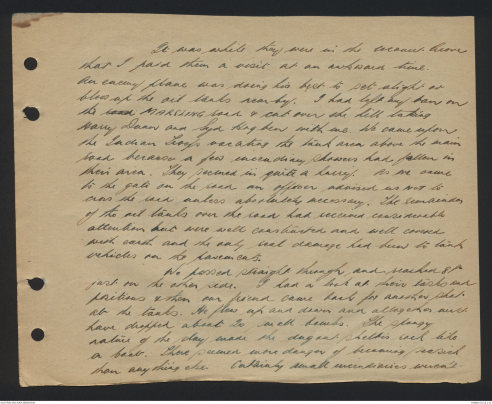 It was while they were in the
that I paid them a visit at an awkward time.
An enemy plane was doing his best to set alight or
blow up the oil tanks nearby. I had left my van on
the road MARSILING road & cut over the hill taking
Harry Dunn and Syd with me. We came upon
the Indian Troops vacating the tank area above the main
road because a few incendiary had fallen in
their area. They seemed in quite a hurry. As we came
to the gate on the road an officer advised us not to
cross the road unless absolutely necessary. The remainder
of the oil tanks over the road had received considerable
attention but were well constructed and well covered
with earth and the only real damage had been to tank
vehicles on the pavements.
We passed straight through and reached 8th
just on the other side. I had a look at their tasks and
positions & then our friend came back for another shot
at the tanks. He flew up and down and altogether must
have dropped about 20 small bombs. The spongy
nature of the clay made the dugout shelter rock like
a boat. There seemed more danger of becoming seasick
than anything else. Certainly small incendiaries weren't